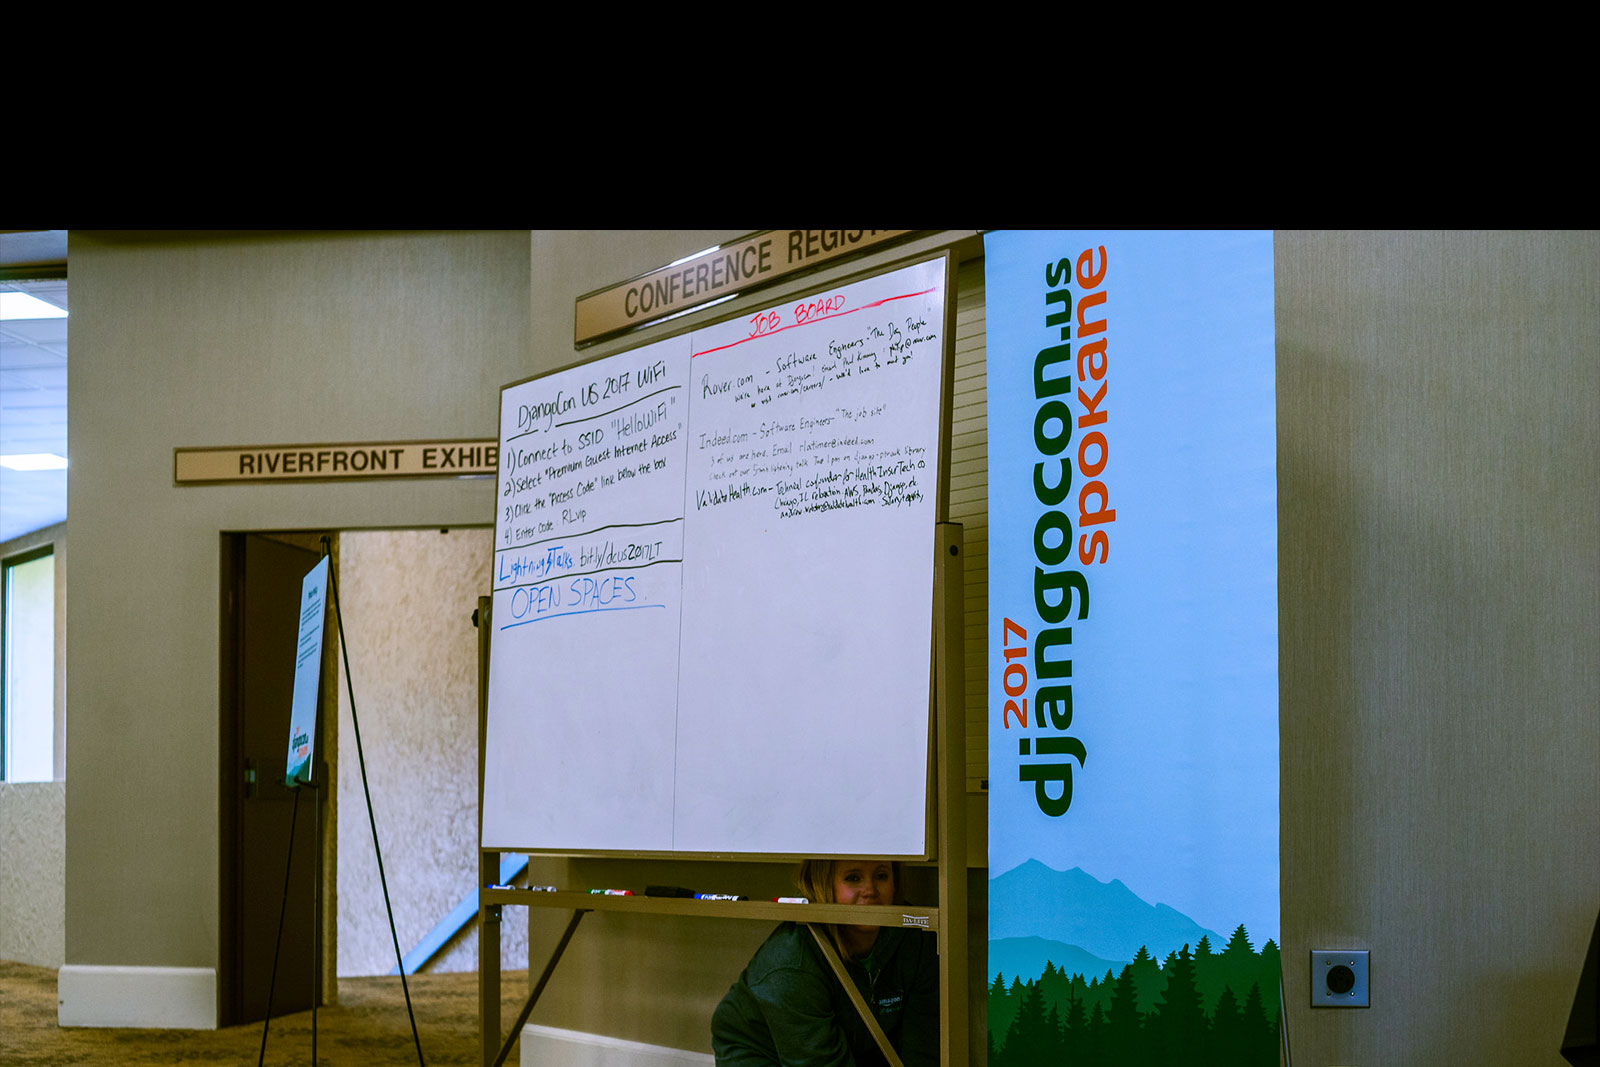 CONFERENCE REGIST
RIVERFRONT EXHIB
DjangoCon US 2017 WiFi
1) Connect to SSID "HelloWiFi"
2) Select "Premium Guest Internet Access"
3) Click the "Access Code" link below the box
4) Enter code RLvip
Lightning Talks. bit.ly/dcus2017LT
OPEN SPACES.
JOB BOARD
Rover.com - Software Engineers - "The Dog People"
We're here at Djangocon! Email Phil Kimmey : philip@rover.com
or visit rover.com/careers/ - we'd love to meet ya!
Indeed.com - Software Engineers - "The job site"
3 of us are here. Email rlatimer@indeed.com
check out our talk Tue 1pm on django-ptrack library
ValidateHealth.com - Technical cofounder for Health InsurTech CO
Chicago, IL relocation. AWS, Pandas, Django, etc
Salary + equity
2017
djangocon.us
spokane
djangocon.us
spokane
amazon
DA-LITE